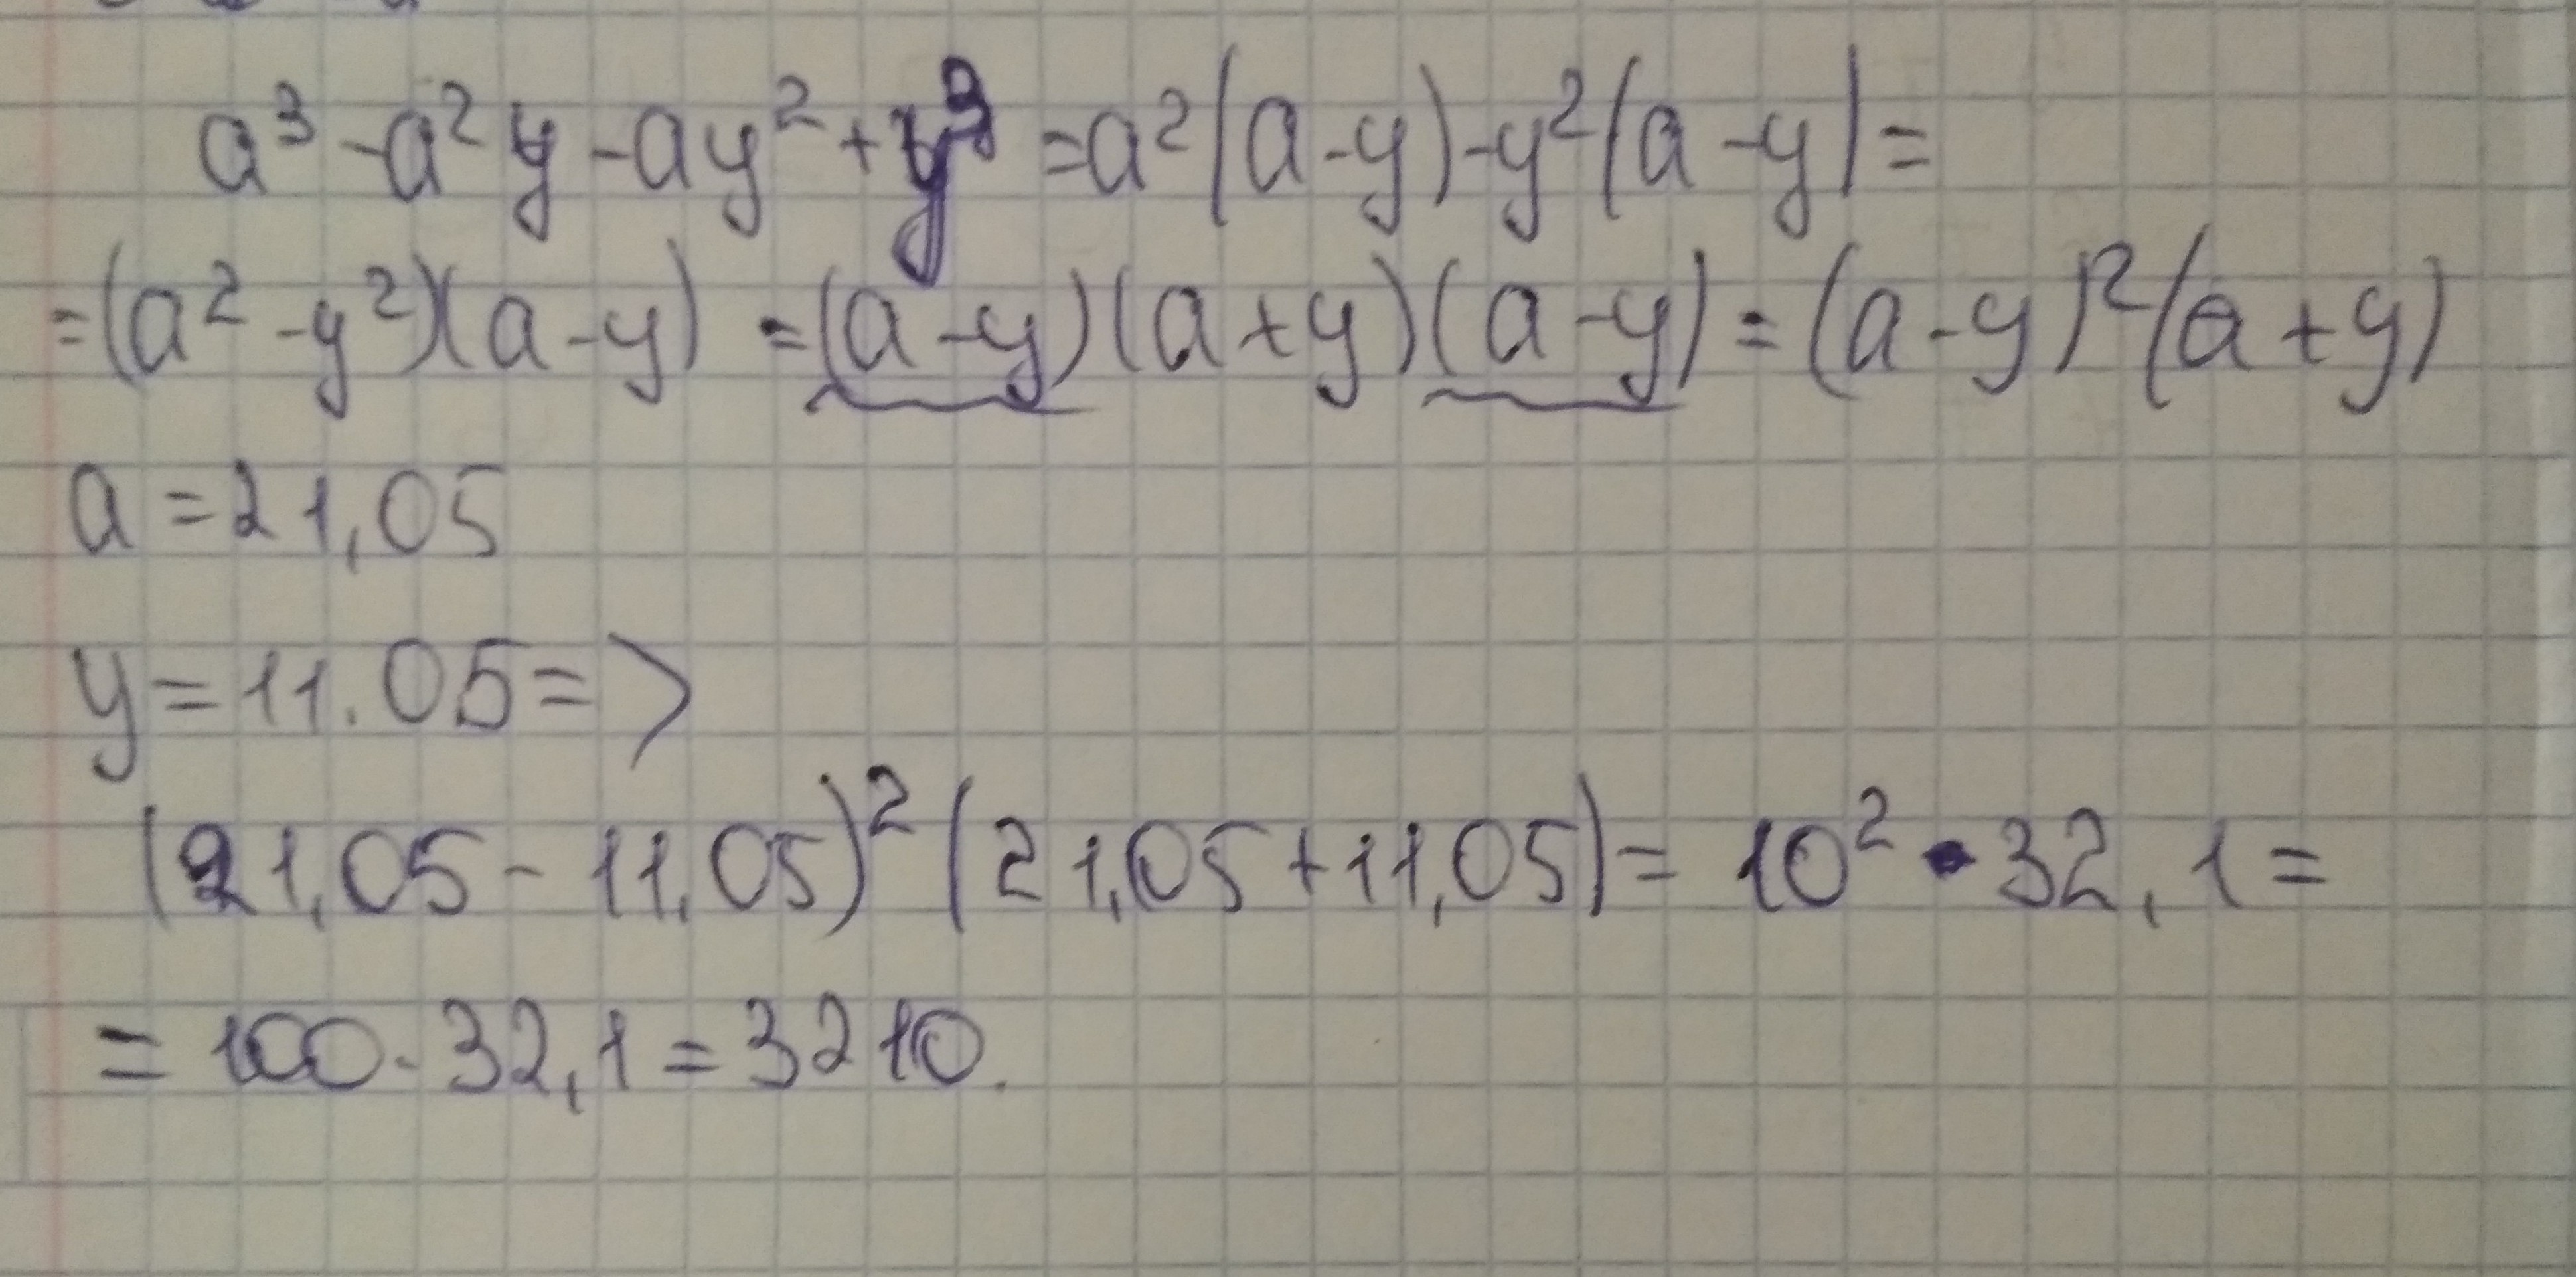 a³ - a²y - ay² + y³ = a²(a - y) - y²(a - y) =
= (a² - y²)(a - y) = (a - y)(a + y)(a - y) = (a - y)²(a + y)
a = 21,05
y = 11.05 =>
(21,05 - 11,05)² (21,05 + 11,05) = 10² · 32,1 =
= 100 · 32,1 = 3210.